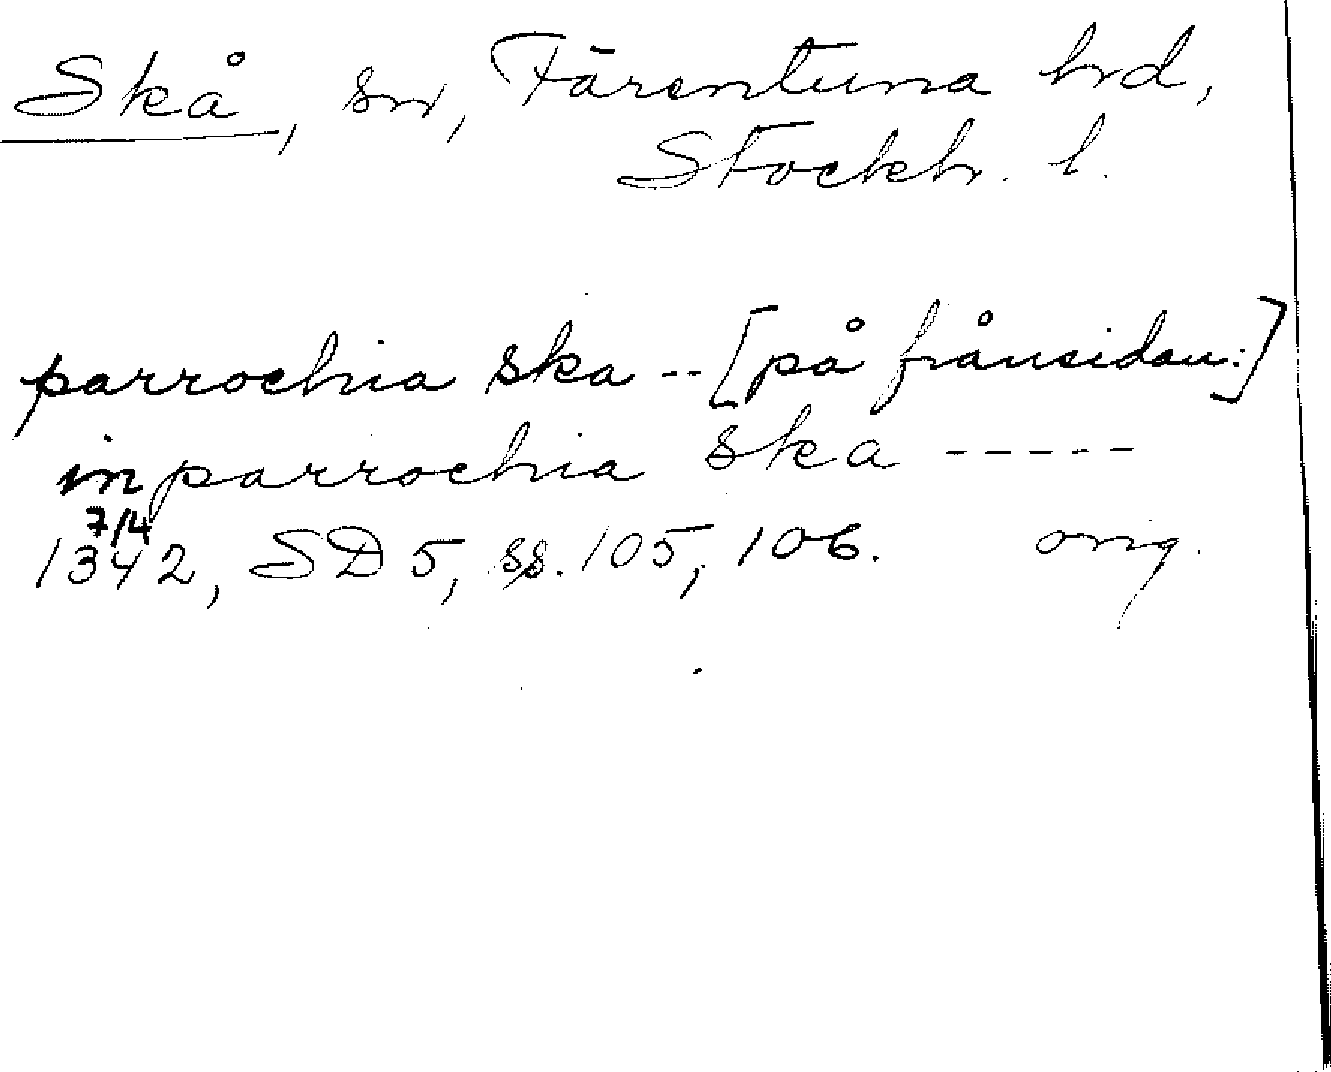 Skå, sn, Färentuna hrd,
Stockh. l.
parrochia ska -- [på frånsidan:]
in parrochia ska -----
7/4
1342, SD 5, ss. 105, 106. orig.